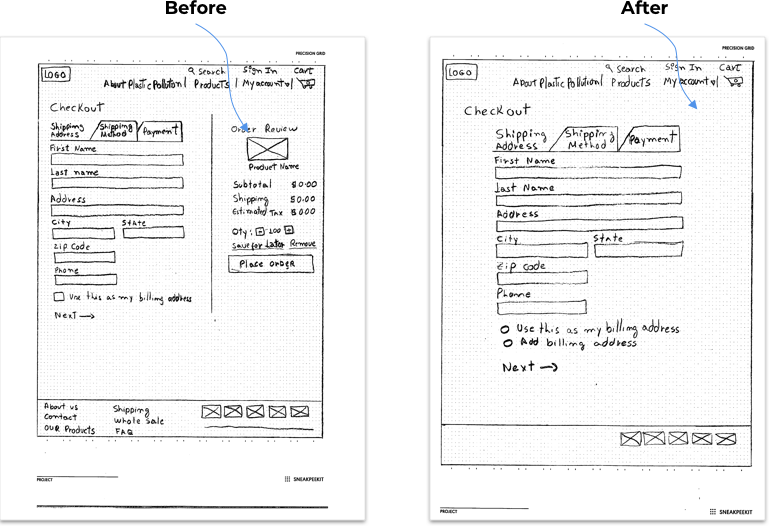 Before
PRECISION GRID
LOGO
Search Sign In Cart
About Plastic Pollution | Products | My account |
Checkout
Shipping Address
Shipping Method
Payment
First Name
Last name
Address
City State
Zip Code
Phone
Use this as my billing address
Next →
Order Review
Product Name
Subtotal $0.00
Shipping $0.00
Estimated Tax $000
Qty: - 100 +
Save for Later Remove
Place order
About us
Contact
OUR Products
Shipping
whole Sale
FAQ
PROJECT
SNEAKPEEKIT
After
PRECISION GRID
LOGO
Search Sign In Cart
About Plastic Pollution | Products My account |
Checkout
Shipping Address
Shipping Method
Payment
First Name
Last Name
Address
City State
Zip code
Phone
Use this as my billing address
Add billing address
Next →
PROJECT
SNEAKPEEKIT